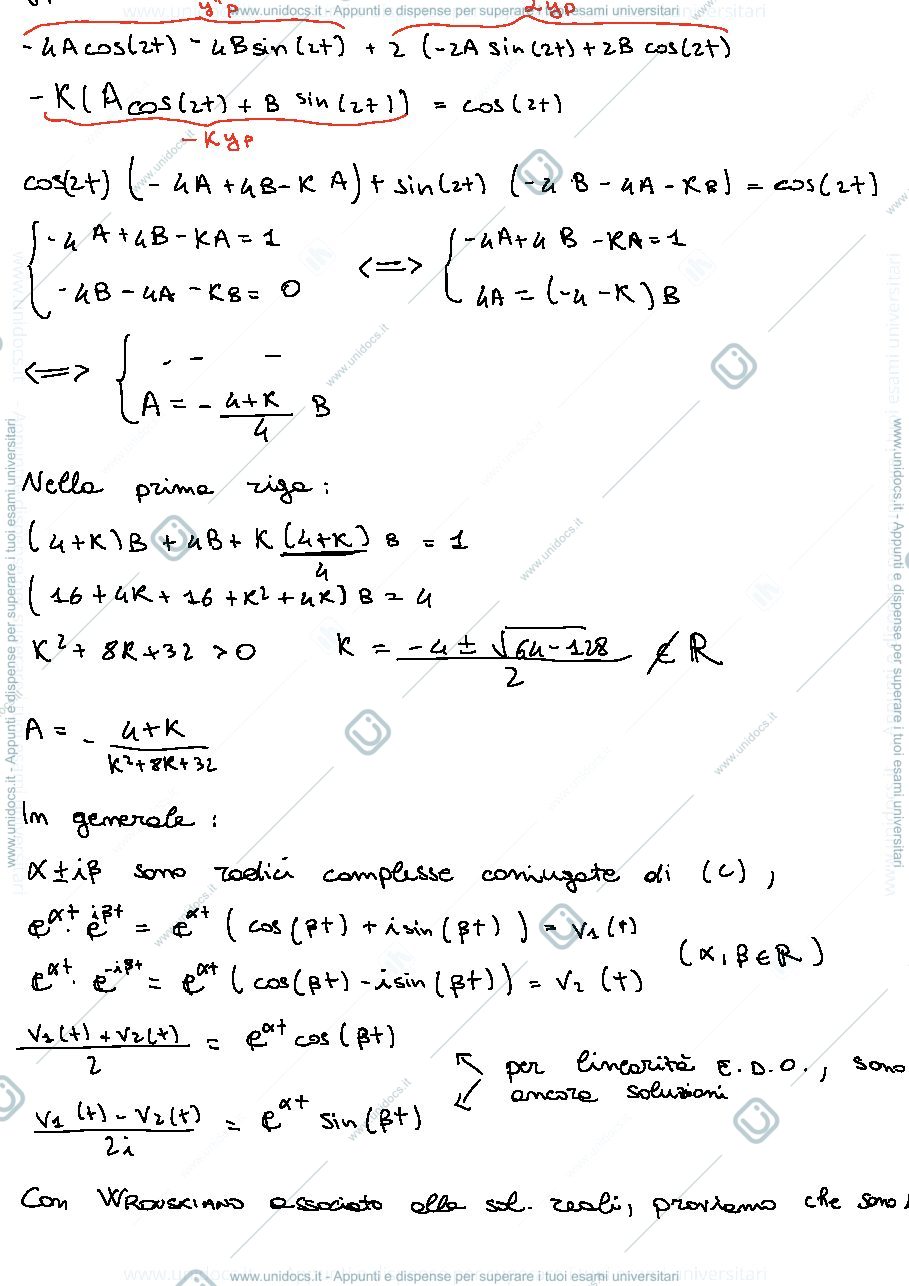 y''p 2y'p
-4A cos(2t) - 4B sin(2t) + 2 (-2A sin(2t) + 2B cos(2t)
-K(A cos(2t) + B sin(2t)) = cos(2t)
-Kyp
cos(2t) (-4A + 4B - KA) + sin(2t) (-4B - 4A - KB) = cos(2t)
{ -4A + 4B - KA = 1 <=> { -4A + 4B - KA = 1
-4B - 4A - KB = 0 4A = (-4 - K) B
<=> { . - -
A = - (4+K)/4 B
Nella prima riga :
(4+K)B + 4B + K (4+K)/4 B = 1
(16 + 4K + 16 + K² + 4K) B = 4
K² + 8K + 32 > 0 K = (-4 ± √(64-128))/2 ∉ ℝ
A = - (4+K)/(K²+8K+32)
In generale :
α±iβ sono radici complesse coniugate di (C) ,
e^αt · e^iβt = e^αt (cos(βt) + i sin(βt)) = V₁(t)
(α, β ∈ ℝ)
e^αt · e^-iβt = e^αt (cos(βt) - i sin(βt)) = V₂(t)
(V₁(t) + V₂(t))/2 = e^αt cos(βt)
per linearità E.D.O., sono
ancora soluzioni
(V₁(t) - V₂(t))/2i = e^αt sin(βt)
Con WRONSKIANO associato alle sol. reali, proviamo che sono
www.unidocs.it - Appunti e dispense per superare i tuoi esami universitari